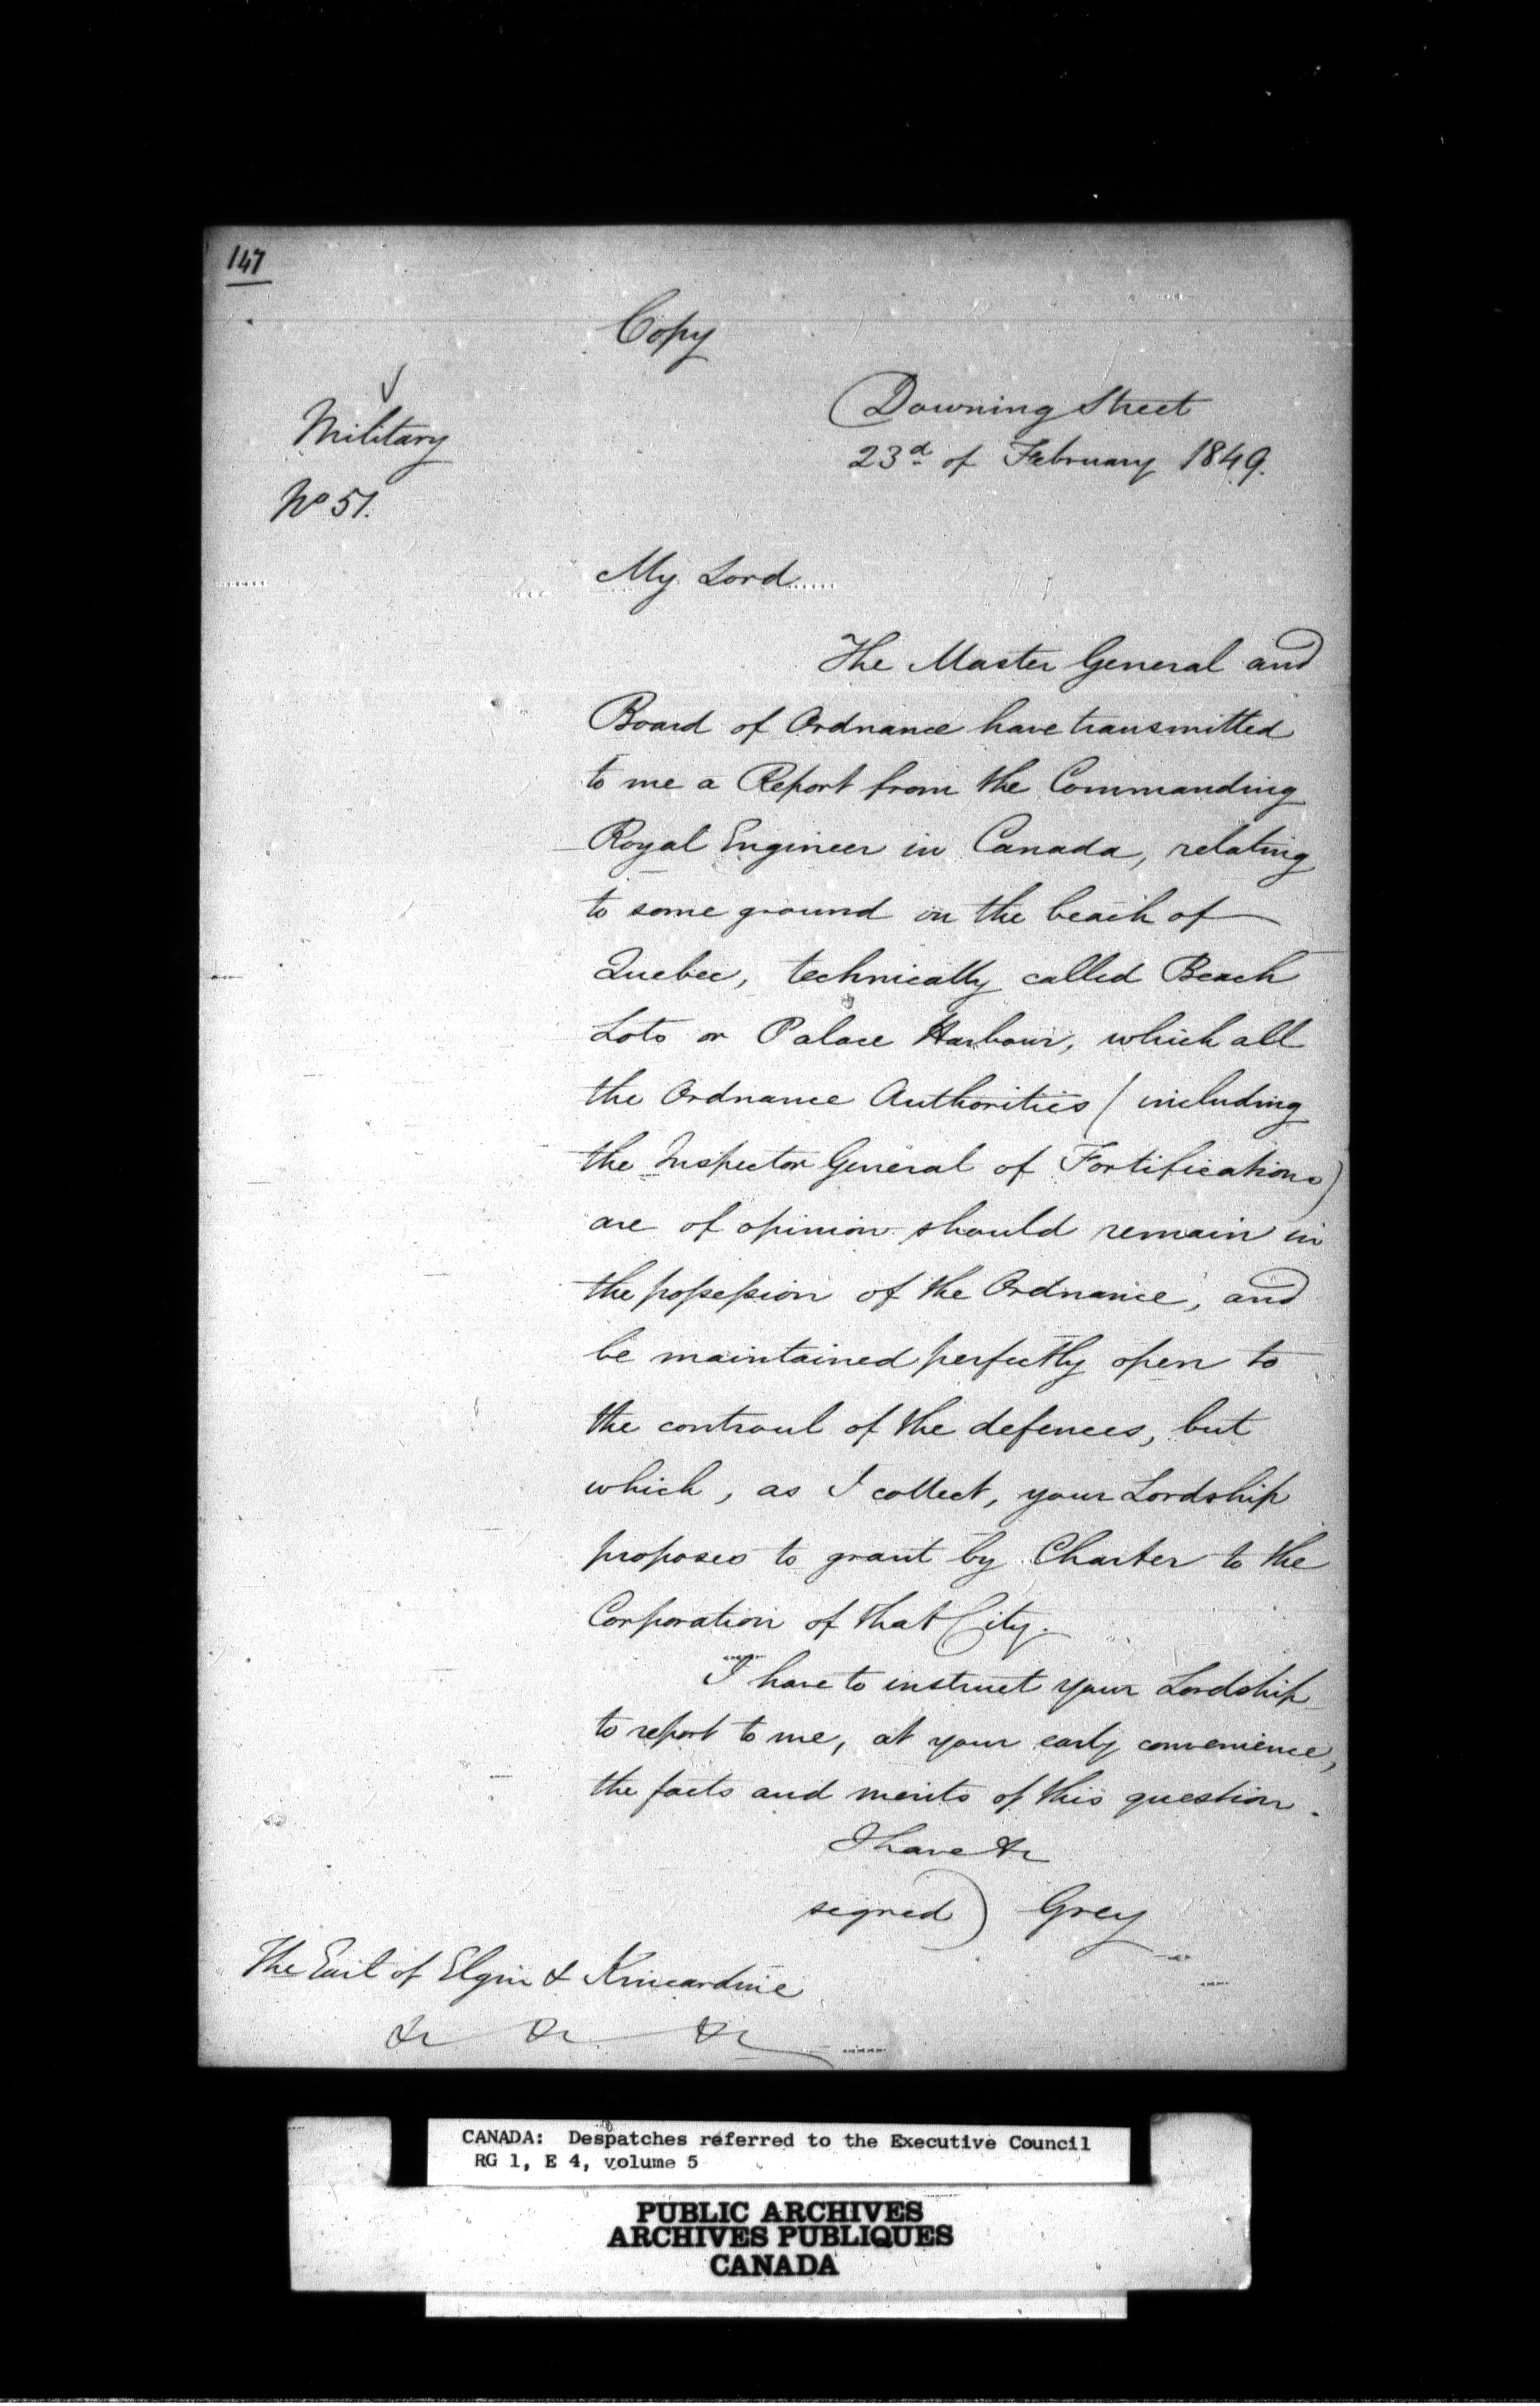 147
Copy
Military
No 51.
Downing Street
23d of February 1849.
My Lord
The Master General and
Board of Ordnance have transmitted
to me a Report from the Commanding
Royal Engineer in Canada, relating
to some ground on the beach of
Quebec, technically called Beach
Lots or Palace Harbour, which all
the Ordnance Authorities (including
the Inspector General of Fortifications)
are of opinion should remain in
the possession of the Ordnance, and
be maintained perfectly open to
the controul of the defences, but
which, as I collect, your Lordship
proposes to grant by Charter to the
Corporation of that City.
I have to instruct your Lordship
to report to me, at your early convenience,
the facts and merits of this question.
I have &c
signed) Grey
The Earl of Elgin & Kincardine
&c &c &c
CANADA: Despatches referred to the Executive Council
RG 1, E 4, volume 5
PUBLIC ARCHIVES
ARCHIVES PUBLIQUES
CANADA